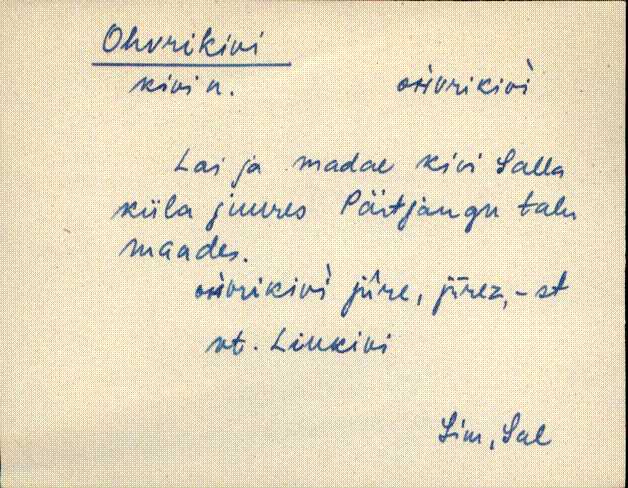 Ohvrikivi
kivi n. ohvrikivì
Lai ja madal kivi Salla
küla juures Pärtjaagu talu
maades.
ohvrikivì jūre, jūrez, -st
vt. Liukivi
Sim, Sal